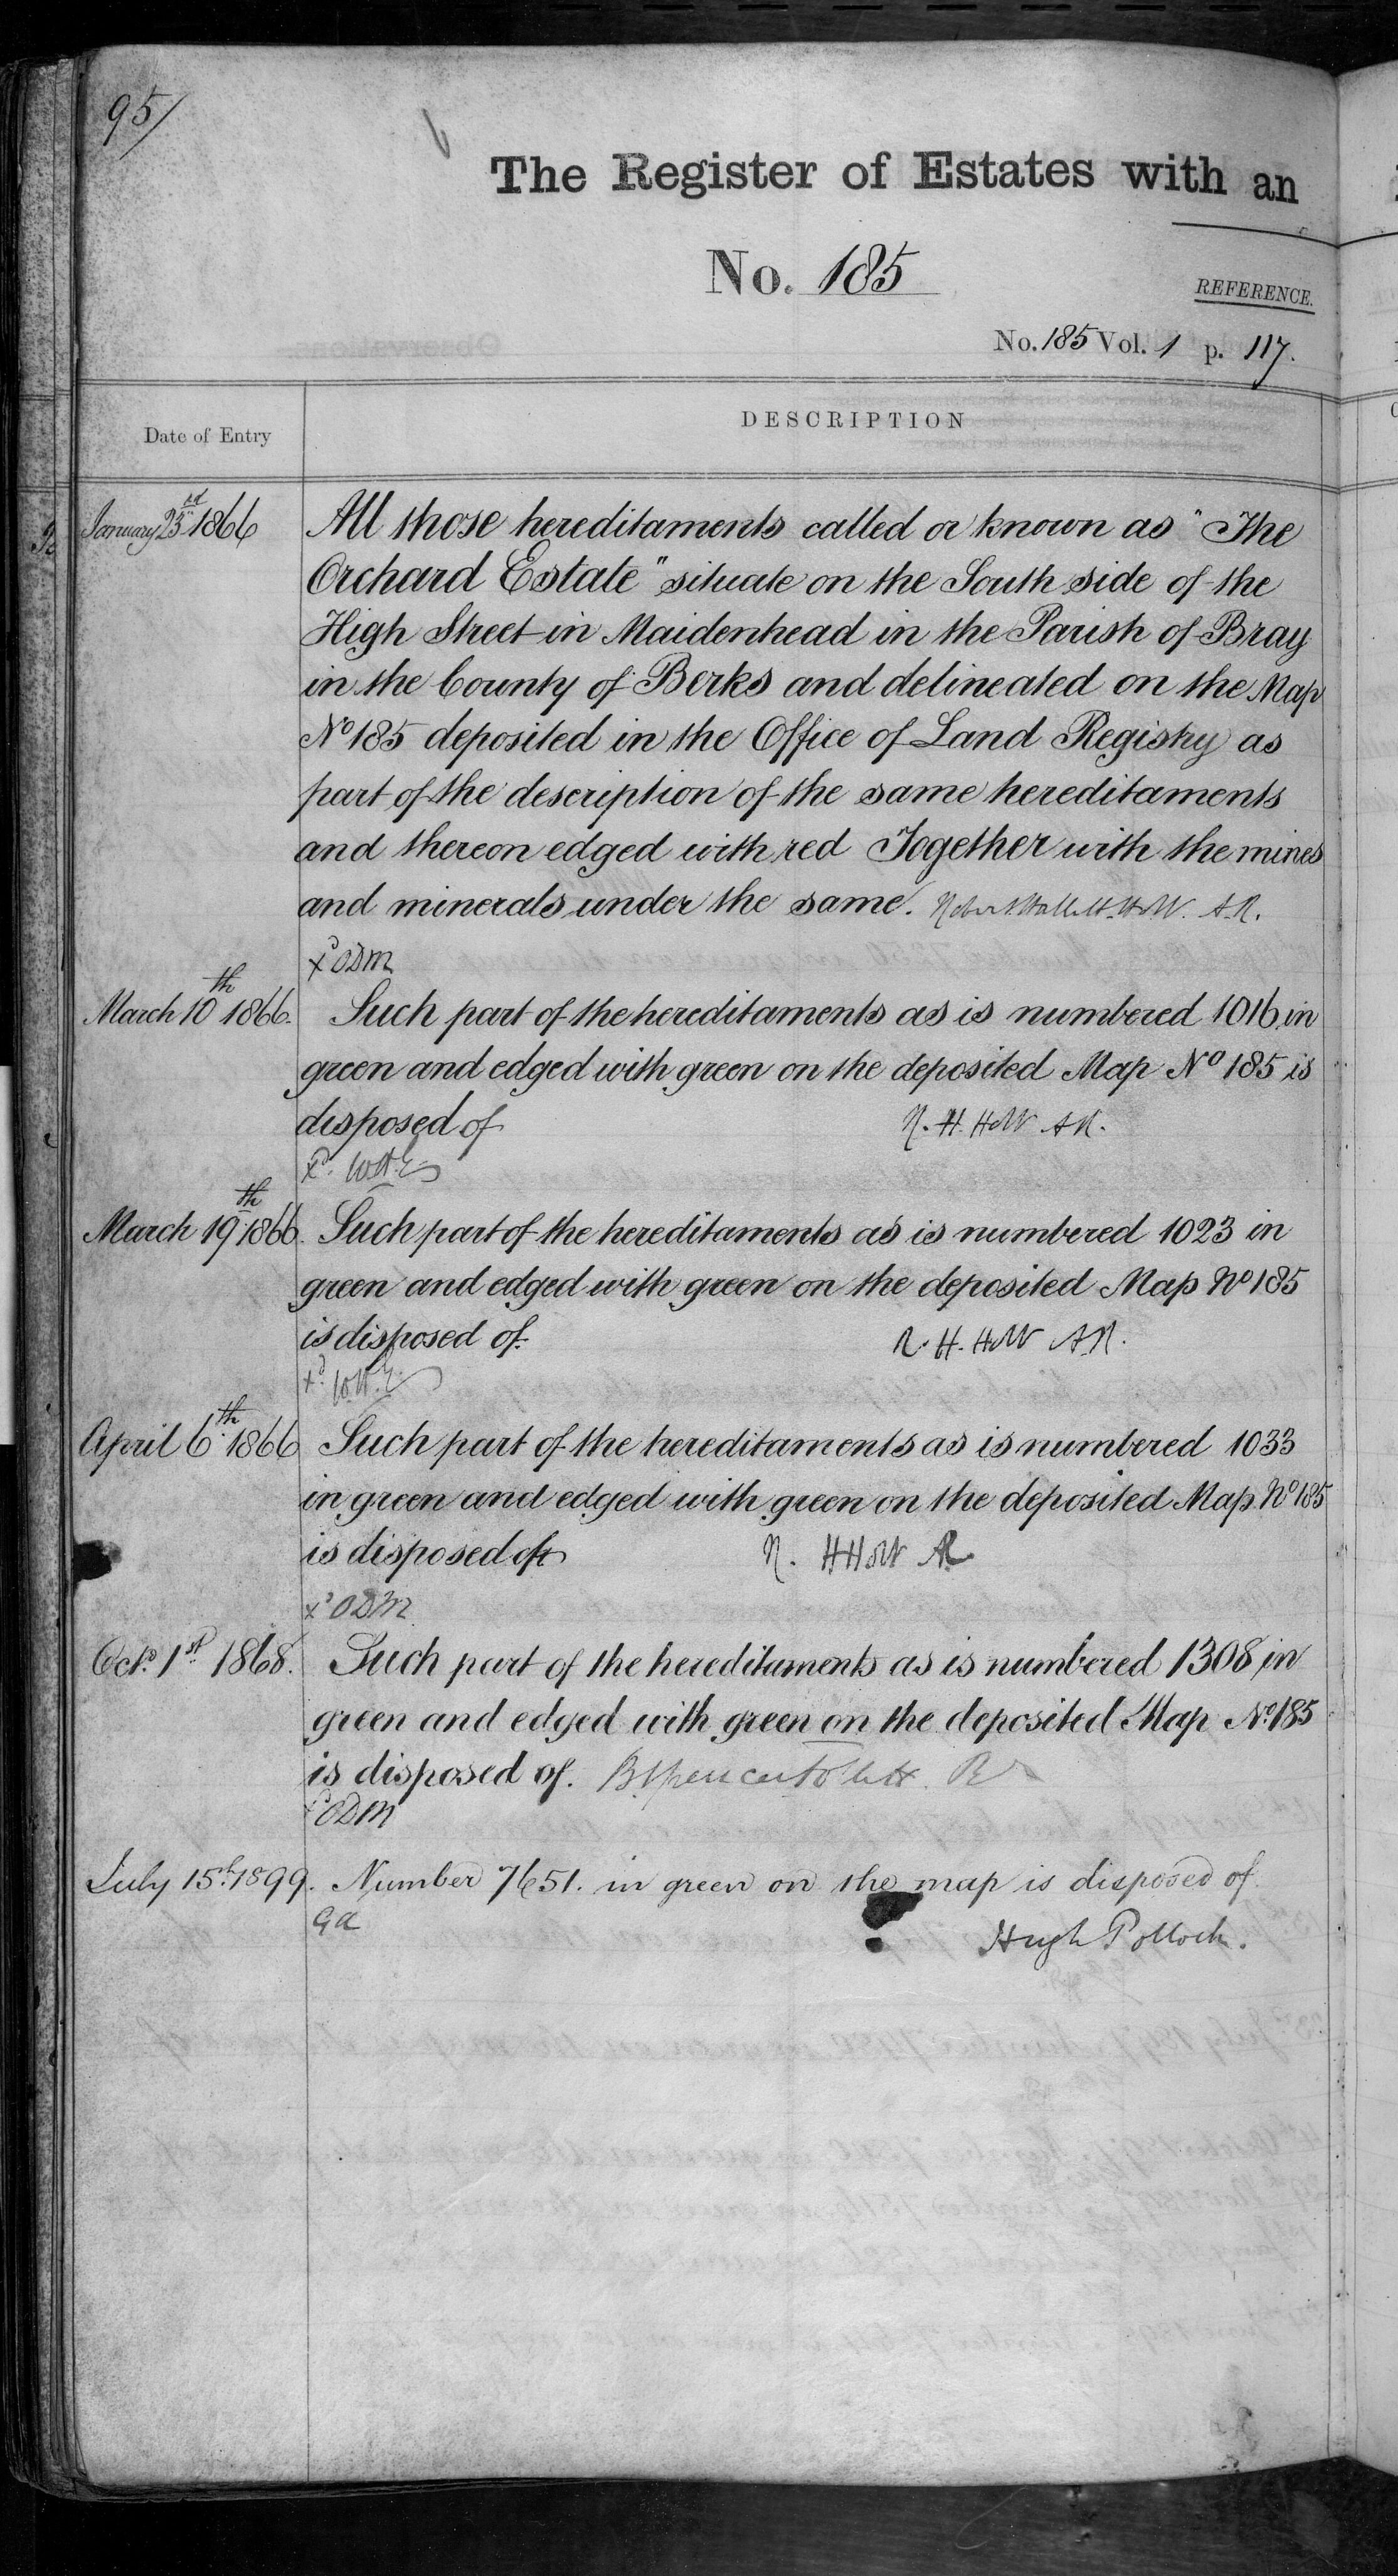 95/
The Register of Estates with an
No. 185
REFERENCE.
No. 185 Vol. 1 p. 117.
Date of Entry
DESCRIPTION
January 23rd 1866
All those hereditaments called or known as "The
Orchard Estate" situate on the South side of the
High Street in Maidenhead in the Parish of Bray
in the County of Berks and delineated on the Map
No 185 deposited in the Office of Land Registry as
part of the description of the same hereditaments
and thereon edged with red Together with the mines
and minerals under the same. A.R.
xd ODM
March 10th 1866.
Such part of the hereditaments as is numbered 1016 in
green and edged with green on the deposited Map No 185 is
disposed of
xd.
March 19th 1866.
Such part of the hereditaments as is numbered 1023 in
green and edged with green on the deposited Map No 185
is disposed of.
xd
April 6th 1866
Such part of the hereditaments as is numbered 1033
in green and edged with green on the deposited Map No 185
is disposed of
xd ODM
Octr. 1st 1868.
Such part of the hereditaments as is numbered 1308 in
green and edged with green on the deposited Map No. 185
is disposed of.
xd ODM
July 15th 1899.
Number 7651. in green on the map is disposed of.
Ga
Hugh Pollock.